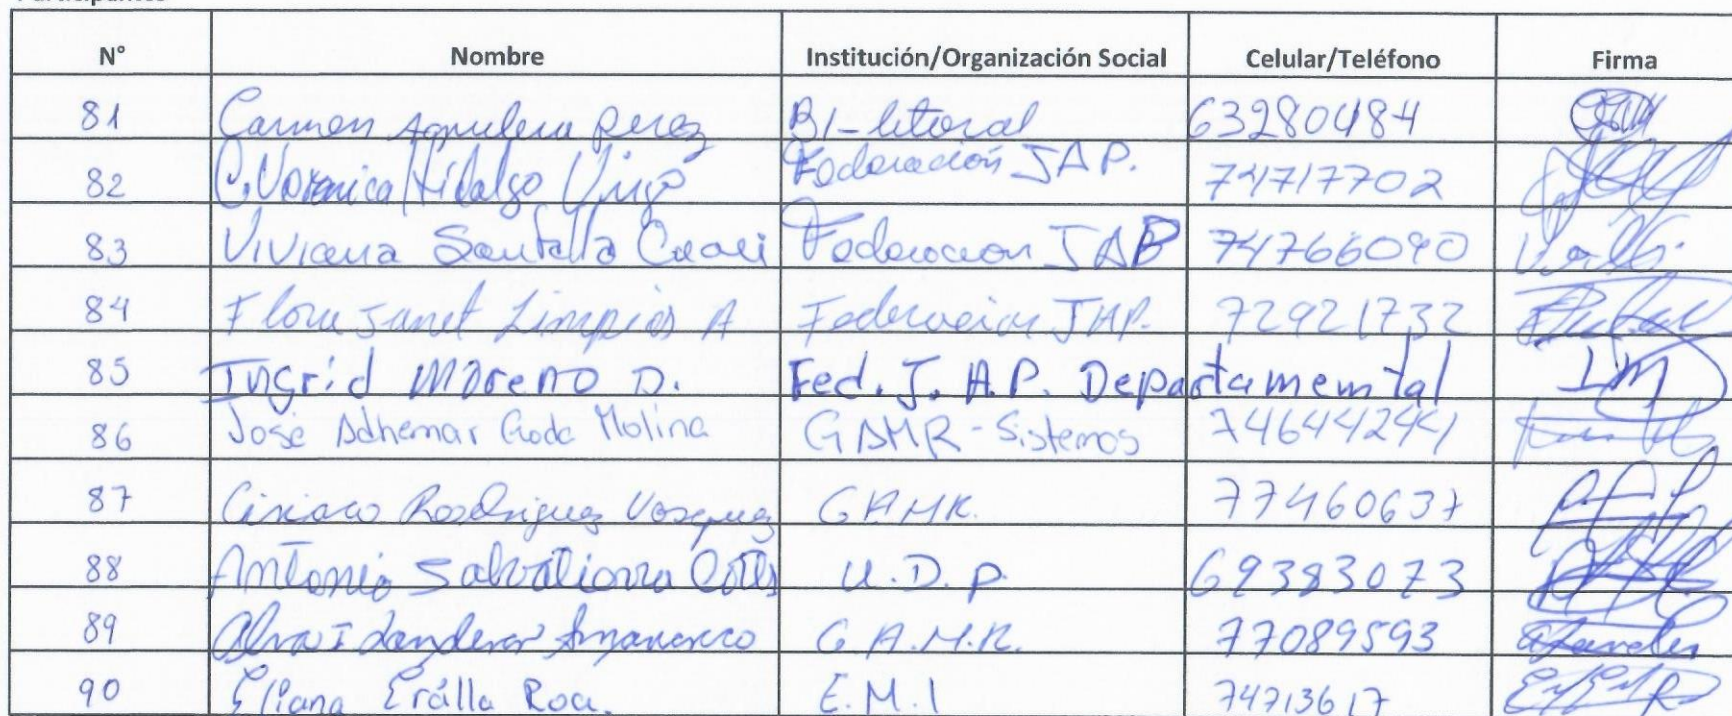 N° Nombre Institución/Organización Social Celular/Teléfono Firma
81 Carmen Aguilera Perez B/-litoral 63280484
82 C. Veronica Hidalgo Federación JAP. 74717702
83 Viviana Santalla Federacion JAP 74766090
84 Flora Janet Limpias A Federacion JAP. 72921732
85 Ingrid Moreno D. Fed. J. A. P. Departamemtal IM
86 José Adhemar Molina GAMR - Sistemas
87 Ciriaco Rodriguez Vasquez GAMR. 77460637
88 Antonio Salvatierra U.D.P. 69383073
89 G.A.M.R. 77089593
90 Eliana Roca. E.M.I 74713617